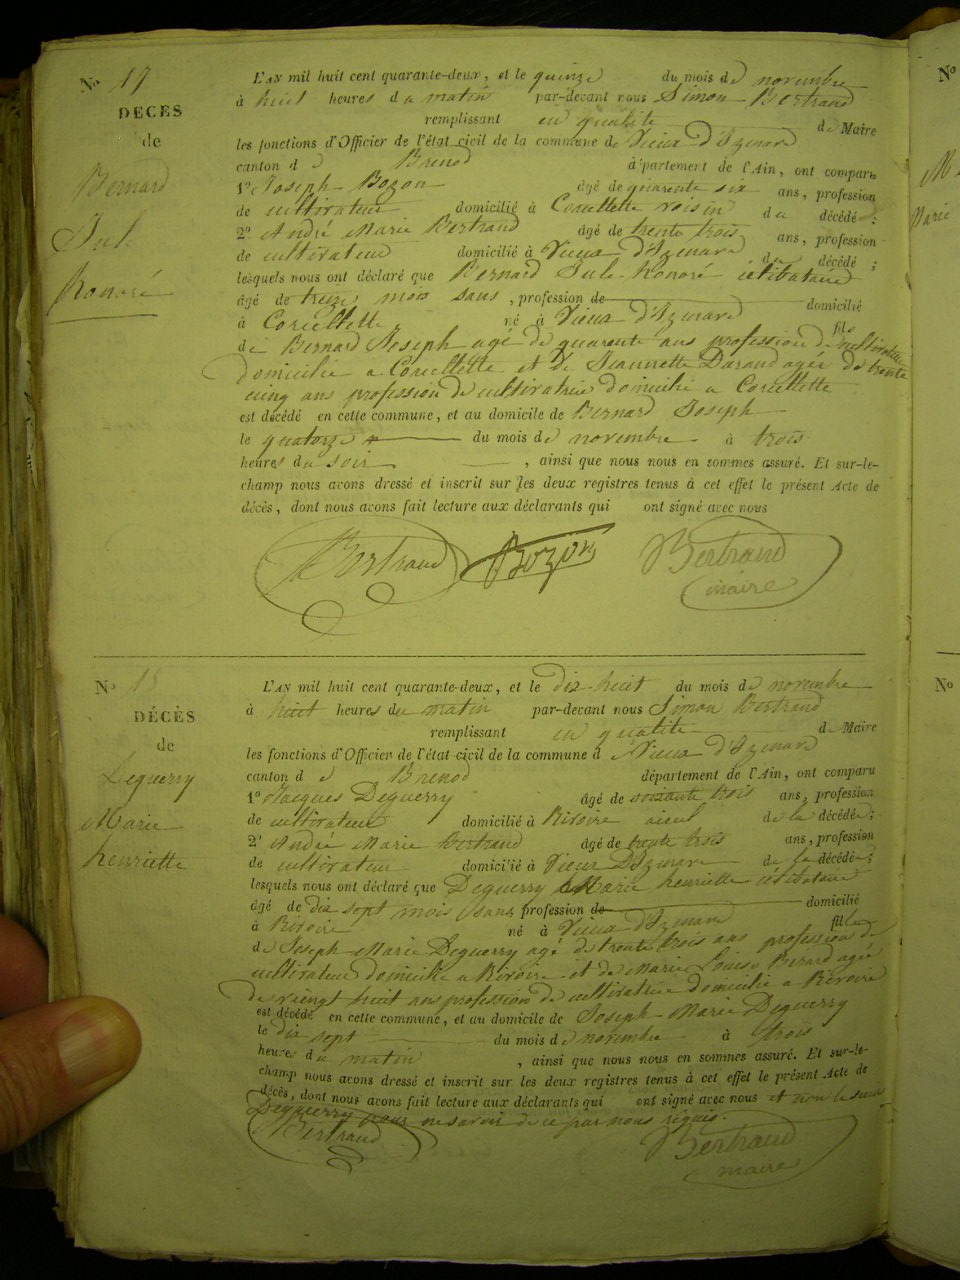 No 17
DÉCÈS
de
Bernard
Jule
honoré
L'AN mil huit cent quarante-deux, et le quinze du mois de novembre
à huit heures du matin par-devant nous Simon Bertrand
remplissant en qualité de Maire
les fonctions d'Officier de l'état civil de la commune de Vieux d'Izenave
canton d Brenod département de l'Ain, ont comparu
1o Joseph Bozon âgé de quarente six ans, profession
de cultivateur domicilié à Corcellette voisin du décédé ;
2o André Marie Bertrand âgé de trente trois ans, profession
de cultivateur domicilié à Vieux d'Izenave du décédé ;
lesquels nous ont déclaré que Bernard Jule honoré célibataire
âgé de treize mois sans , profession de domicilié
à Corcellette né à Vieux d'Izenave fils
de Bernard Joseph agé de quarente ans profession de cultivateur
domicilié a Corcellette et de Jeannette Daraud agée de trente
cinq ans profession de cultivatrice domicilié a Corcellette
est décédé en cette commune, et au domicile de Bernard Joseph
le quatorze du mois de novembre à trois
heures du soir , ainsi que nous nous en sommes assuré. Et sur-le-
champ nous avons dressé et inscrit sur les deux registres tenus à cet effet le présent Acte de
décès, dont nous avons fait lecture aux déclarants qui ont signé avec nous
Bertrand Bozon Bertrand
maire
No 18
DÉCÈS
de
Deguerry
Marie
henriette
L'AN mil huit cent quarante-deux, et le dix-huit du mois de novembre
à huit heures du matin par-devant nous Simon Bertrand
remplissant en qualité de Maire
les fonctions d'Officier de l'état civil de la commune d Vieux d'Izenave
canton d Brenod département de l'Ain, ont comparu
1o Jacques Deguerry âgé de soixante trois ans, profession
de cultivateur domicilié à Rivoire aieul de la décédée ;
2o André Marie Bertrand âgé de trente trois ans, profession
de cultivateur domicilié à Vieux D'Izenave de la décédée ;
lesquels nous ont déclaré que Deguerry Marie henriette célibataire
âgé de dix sept mois sans profession de domicilié
à Rivoire né à Vieux d'Izenave fille
de Joseph Marie Deguerry agé de trente trois ans profession de
cultivateur domicilié a Rivoire et de Marie Louise agée
de vingt huit ans profession de cultivatrice domicilié a Rivoire
est décédé en cette commune, et au domicile de Joseph Marie Deguerry
le dix sept du mois de novembre à trois
heures du matin , ainsi que nous nous en sommes assuré. Et sur-le-
champ nous avons dressé et inscrit sur les deux registres tenus à cet effet le présent Acte de
décès, dont nous avons fait lecture aux déclarants qui ont signé avec nous et non le sieur
Deguerry pour ne savoir de ce par nous requis.
Bertrand Bertrand
maire
No
No